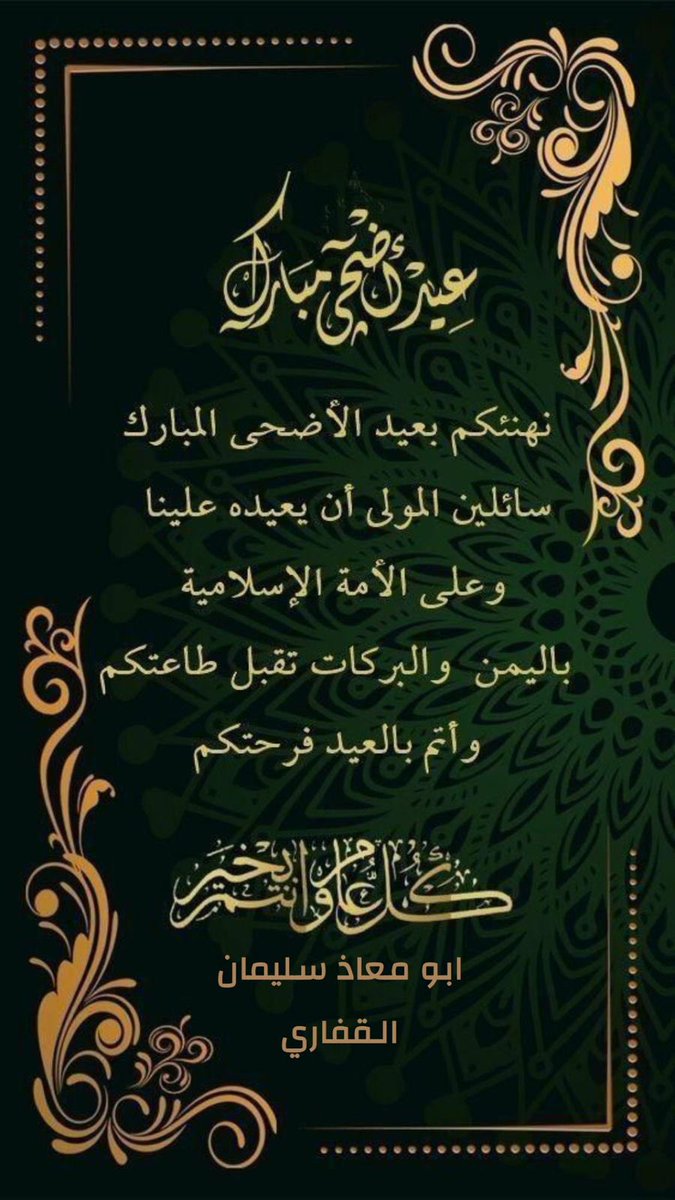 عيد أضحى مبارك
نهنئكم بعيد الأضحى المبارك
سائلين المولى أن يعيده علينا
وعلى الأمة الإسلامية
باليمن والبركات تقبل طاعتكم
وأتم بالعيد فرحتكم
كل عام وانتم بخير
ابو معاذ سليمان
القفاري